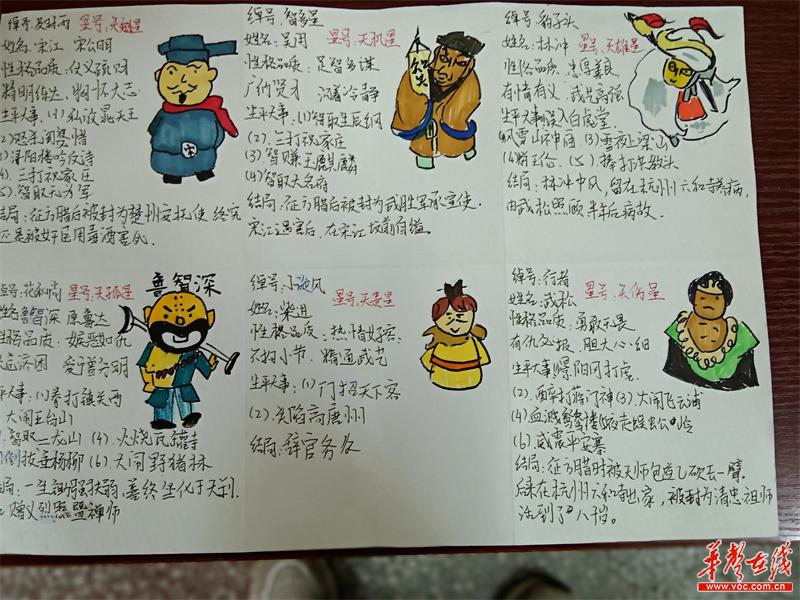 绰号:及时雨 星号:天魁星
姓名:宋江 宋公明
性格品质:仗义疏财
精明练达、胸怀大志
生平大事:(1)私放晁天王
(2)怒杀阎婆惜
(3)浔阳楼吟反诗
(4).三打祝家庄
(5).智取无为军
结局:征方腊后被封为楚州安抚使 终究
还是被奸臣用毒酒害死
绰号:智多星
姓名:吴用 星号:天机星
性格品质:足智多谋
广纳贤才 沉着冷静
生平大事:(1)智取生辰纲
(2).三打祝家庄
(3)智赚玉麒麟
(4)智取大名府
结局:征方腊后被封为武胜军承宣使.
宋江遇害后,在宋江坟前自缢。
绰号:豹子头
姓名:林冲 星号:天雄星
性格品质:忠厚善良
有情有义、武艺高强
生平大事:误入白虎堂.
风雪山神庙 (3)雪夜上梁山
(5)棒打洪教头
结局:林冲中风,留在杭州六和寺养病,
由武松照顾半年后病故。
绰号:花和尚 星号:天孤星 鲁智深
姓名鲁智深 原鲁达
性格品质:嫉恶如仇
急济困 爱憎分明
生平大事:(1)拳打镇关西
大闹五台山
智取二龙山 (4).火烧瓦罐寺
倒拔垂杨柳 (6).大闹野猪林
结局:一生锄强扶弱,最终坐化于
赠义烈照暨禅师
绰号:小旋风
姓名:柴进 星号:天贵星
性格品质:热情好客
不拘小节、精通武艺
生平大事:(1)门招天下客
(2).失陷高唐州
结局:辞官务农
绰号:行者
姓名:武松 星号:天伤星
性格品质:勇敢无畏
有仇必报、胆大心细
生平大事景阳冈打虎
(2).醉打蒋门神(3)大闹飞云浦
(4)血溅鸳鸯楼夜走蜈蚣岭
(6).威震平安寨
结局:征方腊时被天师包道乙砍去一臂.
后来在杭州六和寺出家,被封为清忠祖师
活到了八十岁。
华声在线
www.voc.com.cn